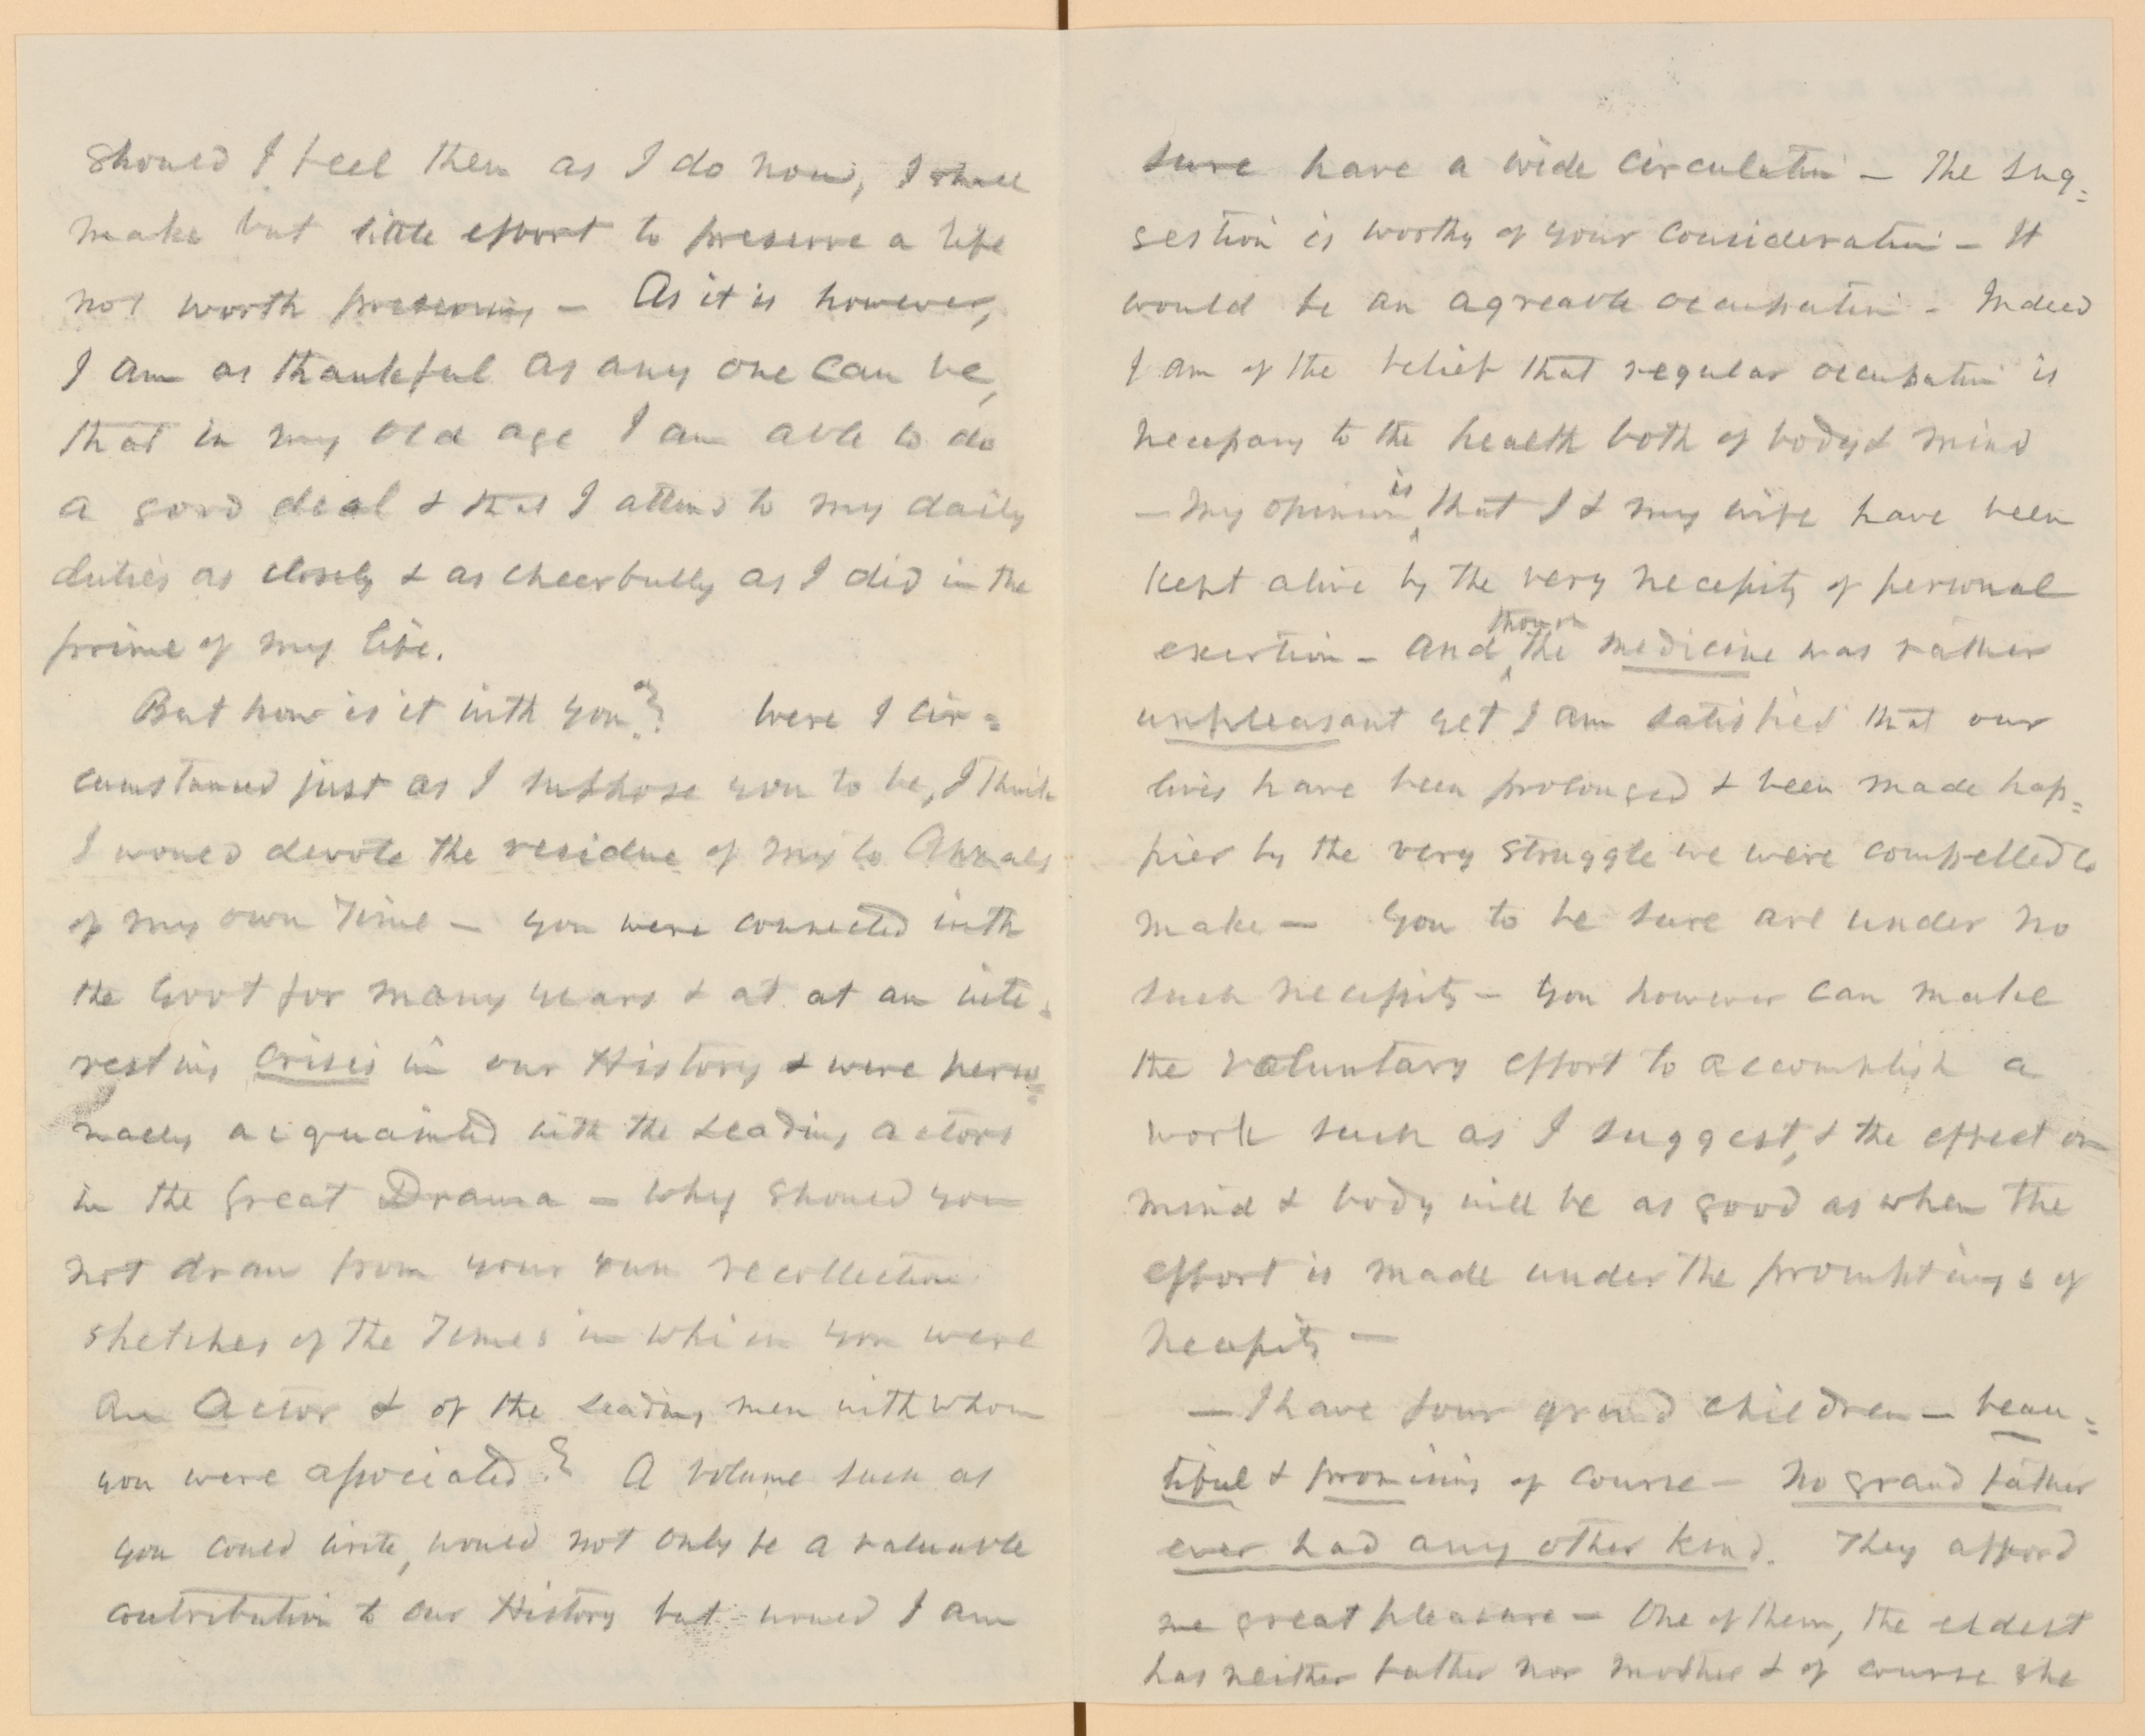 should I feel them as I do now, I shall
make but little effort to preserve a life
not worth preserving – As it is however,
I am as thankful as any one can be,
that in my old age I am able to do
a good deal & that I attend to my daily
duties as closely & as cheerfully as I did in the
prime of my life.
But how is it with you? Were I cir=
cumstanced just as I suppose you to be, I think
I would devote the residue of my to Annals
of my own Time – You were connected with
the Govt for many years & at at an inte=
resting crisis in our History & were perso=
nally acquainted with the Leading actors
in the Great Drama – Why should you
not draw from your own recollection
sketches of the Times in which you were
an Actor & of the Leading men with whom
you were associated? A volume such as
you could write, would not only be a valuable
contribution to our History but would I am
sure have a wide circulation – The sug=
gestion is worthy of your consideration – It
would be an agreable occupation – Indeed
I am of the belief that regular occupation is
necessary to the health both of body & mind
– My opinion is that I & my wife have been
kept alive by the very necessity of personal
exertion – And though the medicine was rather
unpleasant yet I am satisfied that our
lives have been prolonged & been made hap=
pier by the very struggle we were compelled to
make – You to be sure are under no
such necessity – You however can make
the voluntary effort to accomplish a
work such as I suggest, & the effect on
mind & body will be as good as when the
effort is made under the promptings of
necessity –
– I have four grand children – beau=
tiful & promising of course – No grand father
ever had any other kind. They afford
me great pleasure – One of them, the eldest
has neither father nor mother & of course she